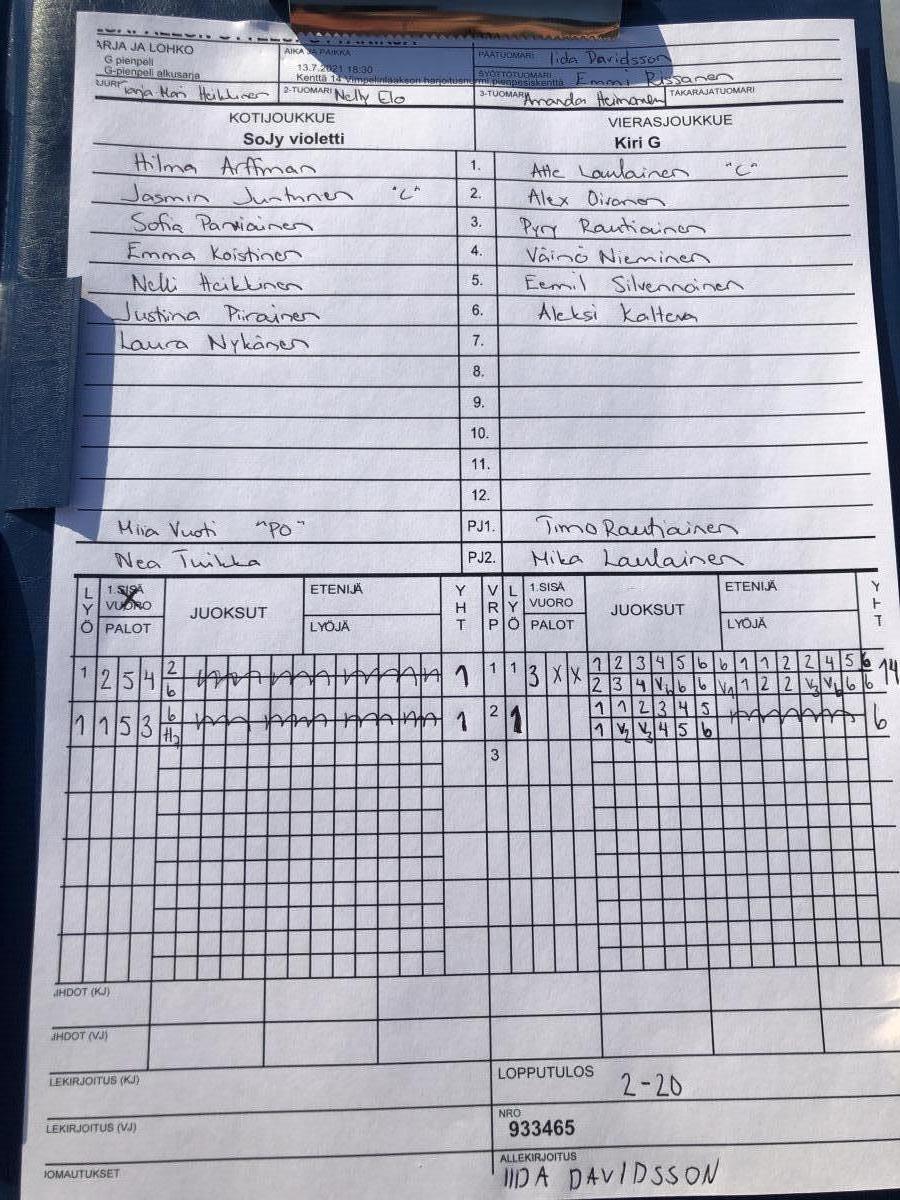 ARJA JA LOHKO
G pienpeli
G-pienpeli alkusarja
AIKA JA PAIKKA
13.7.2021 18:30
Kenttä 14 Vimpelinlaakson harjoitusnurmi pienpesiskenttä
PÄÄTUOMARI Iida Davidsson
SYÖTTÖTUOMARI Emmi Rissanen
2-TUOMARI Nelly Elo
3-TUOMARI Amanda Heimonen
TAKARAJATUOMARI
KOTIJOUKKUE VIERASJOUKKUE
SoJy violetti Kiri G
Hilma Arffman 1. Atte Laulainen "C"
Jasmin Juntunen "C" 2. Alex Oivanen
Sofia Parviainen 3. Pyry Rautiainen
Emma Koistinen 4. Väinö Nieminen
Nelli Heikkinen 5. Eemil Silvennoinen
Justiina Piirainen 6. Aleksi Kalteva
Laura Nykänen 7.
8.
9.
10.
11.
12.
Miia Vuoti "PO" PJ1. Timo Rautiainen
Nea Tuikka PJ2. Mika Laulainen
LYÖ 1.SISÄ VUORO PALOT JUOKSUT ETENIJÄ LYÖJÄ YHT VRP LYÖ 1.SISÄ VUORO PALOT JUOKSUT ETENIJÄ LYÖJÄ YHT
1 2 5 4 2 1 1 1 3 X X 1 2 3 4 5 6 6 1 1 2 2 4 5 6 14
6 2 3 4 V6 6 6 V1 1 2 2 V3 V6 6 6
1 1 5 3 6 1 2 1 1 1 2 3 4 5 6
H2 1 V2 V3 4 5 6
3
JHDOT (KJ)
JHDOT (VJ)
LEKIRJOITUS (KJ)
LEKIRJOITUS (VJ)
IOMAUTUKSET
LOPPUTULOS 2-20
NRO
933465
ALLEKIRJOITUS
IIDA DAVIDSSON